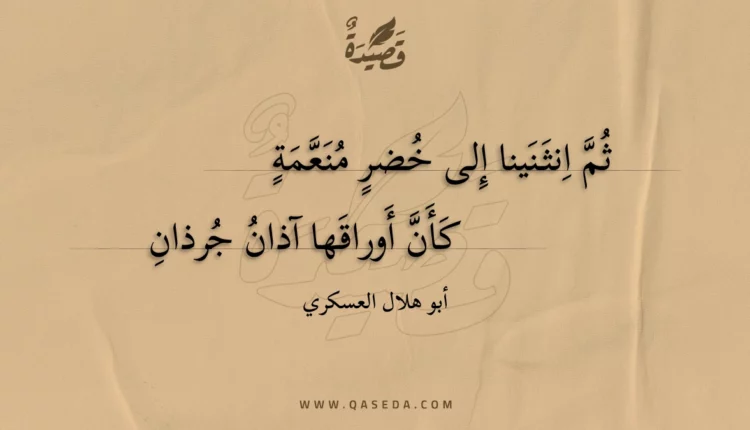 قَصِيدَةٌ
ثُمَّ اِنثَنَينا إِلى خُضرٍ مُنَعَّمَةٍ
كَأَنَّ أَوراقَها آذانُ جُرذانِ
أبو هلال العسكري
WWW.QASEDA.COM